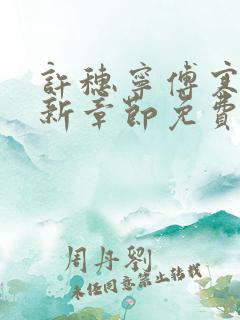 許穗寧傅寒
新章節免費
周丹劉
未经同意禁止转载